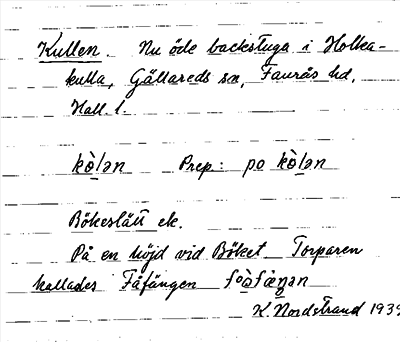 Kullen. Nu öde backstuga i Holka-
kulla, Gällareds sn, Faurås hd,
Hall. l.
kò̤lən Prep.: po kò̤lən
Bökeslätt ek.
På en höjd vid Böket Torparen
kallades Fåfängen
K. Nordstrand 1939